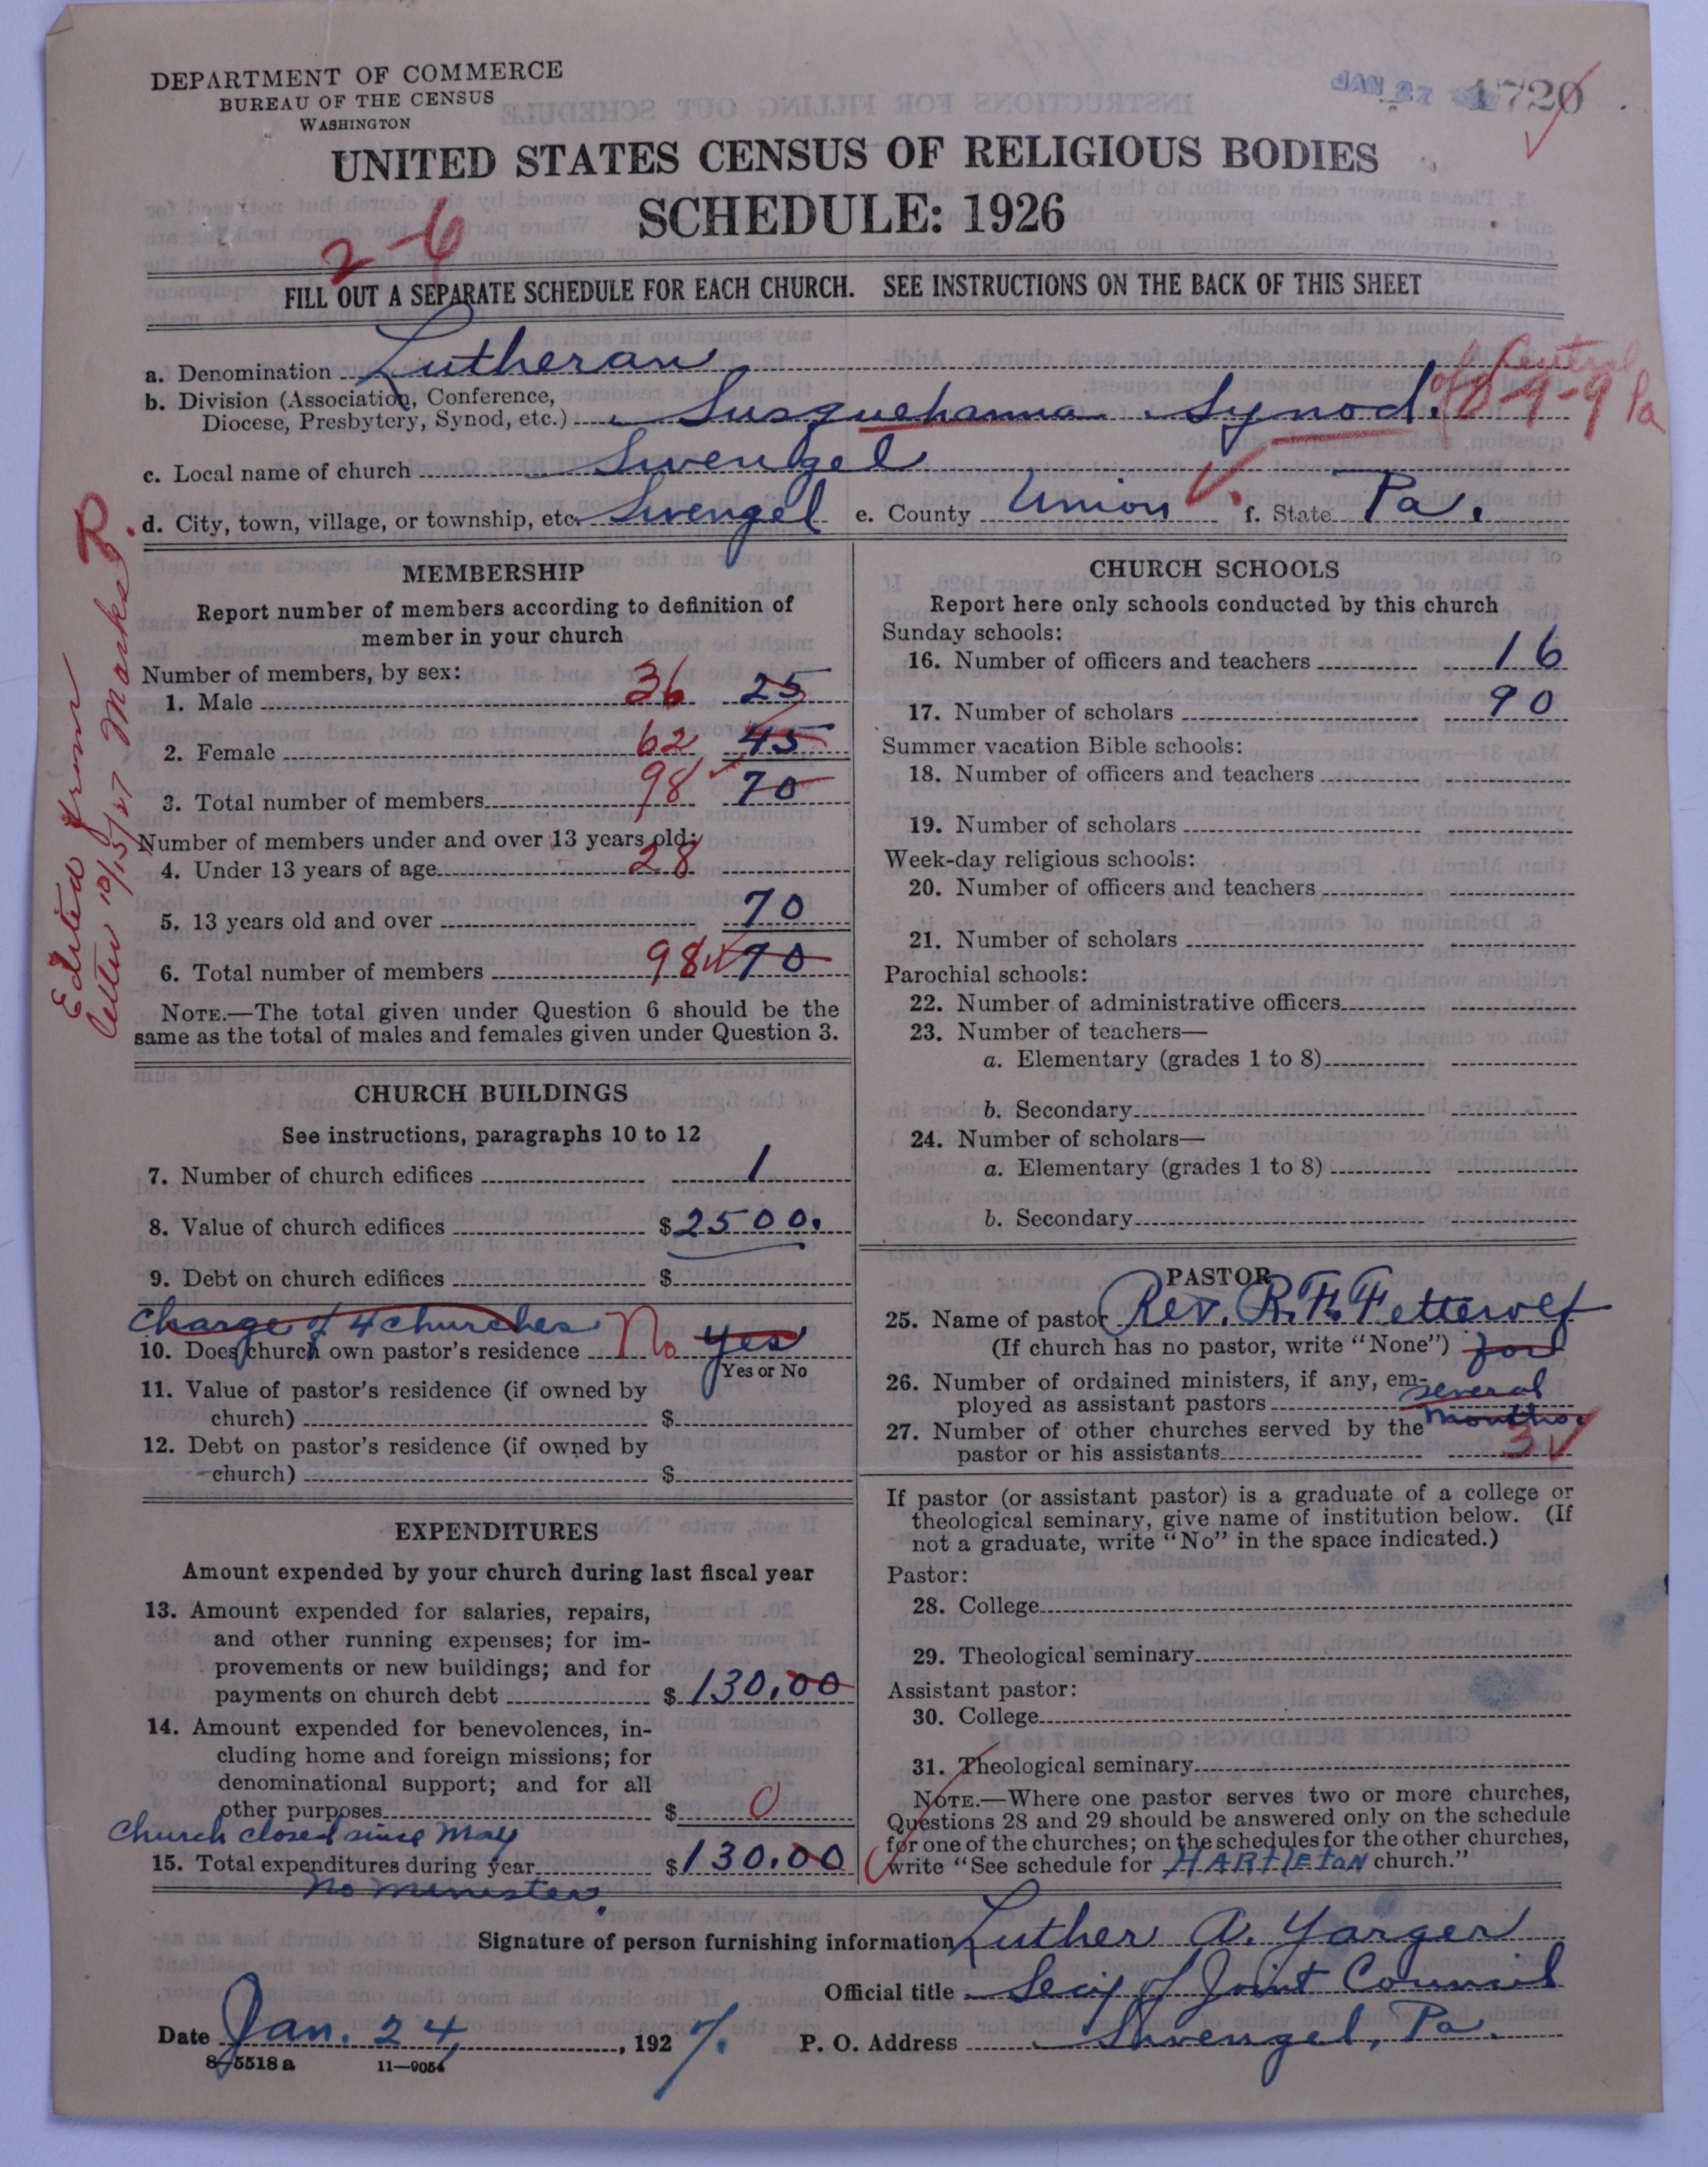 DEPARTMENT OF COMMERCE
BUREAU OF THE CENSUS
WASHINGTON
JAN 27
1720
UNITED STATES CENSUS OF RELIGIOUS BODIES
SCHEDULE: 1926
2-6
FILL OUT A SEPARATE SCHEDULE FOR EACH CHURCH. SEE INSTRUCTIONS ON THE BACK OF THIS SHEET
a. Denomination Lutheran
b. Division (Association, Conference, Diocese, Presbytery, Synod, etc.) Susquehanna Synod. of Central Pa
9-9
c. Local name of church Swengel
d. City, town, village, or township, etc. Swengel e. County Union f. State Pa.
Edited from
letter 10/15/27 Marks R.
MEMBERSHIP
Report number of members according to definition of
member in your church
Number of members, by sex:
1. Male 36 25
2. Female 62 45
3. Total number of members 98 70
Number of members under and over 13 years old:
4. Under 13 years of age 28
5. 13 years old and over 70
6. Total number of members 98 70
NOTE.—The total given under Question 6 should be the
same as the total of males and females given under Question 3.
CHURCH BUILDINGS
See instructions, paragraphs 10 to 12
7. Number of church edifices 1
8. Value of church edifices $2500.
9. Debt on church edifices $
Charge of 4 churches
10. Does church own pastor's residence No yes
Yes or No
11. Value of pastor's residence (if owned by
church) $
12. Debt on pastor's residence (if owned by
church) $
EXPENDITURES
Amount expended by your church during last fiscal year
13. Amount expended for salaries, repairs,
and other running expenses; for im-
provements or new buildings; and for
payments on church debt $130.00
14. Amount expended for benevolences, in-
cluding home and foreign missions; for
denominational support; and for all
other purposes $ 0
Church closed since May
15. Total expenditures during year $130.00
No minister.
CHURCH SCHOOLS
Report here only schools conducted by this church
Sunday schools:
16. Number of officers and teachers 16
17. Number of scholars 90
Summer vacation Bible schools:
18. Number of officers and teachers
19. Number of scholars
Week-day religious schools:
20. Number of officers and teachers
21. Number of scholars
Parochial schools:
22. Number of administrative officers
23. Number of teachers—
a. Elementary (grades 1 to 8)
b. Secondary
24. Number of scholars—
a. Elementary (grades 1 to 8)
b. Secondary
PASTOR
25. Name of pastor Rev. R. F. Fetterolf
(If church has no pastor, write "None") for
26. Number of ordained ministers, if any, em-
ployed as assistant pastors several
months.
27. Number of other churches served by the
pastor or his assistants 3
If pastor (or assistant pastor) is a graduate of a college or
theological seminary, give name of institution below. (If
not a graduate, write "No" in the space indicated.)
Pastor:
28. College
29. Theological seminary
Assistant pastor:
30. College
31. Theological seminary
NOTE.—Where one pastor serves two or more churches,
Questions 28 and 29 should be answered only on the schedule
for one of the churches; on the schedules for the other churches,
write "See schedule for HARTLETON church."
Signature of person furnishing information Luther A. Yarger
Official title Sec'y of Joint Council
Date Jan. 24, 1927. P. O. Address Swengel, Pa.
8-5518 a 11-9054